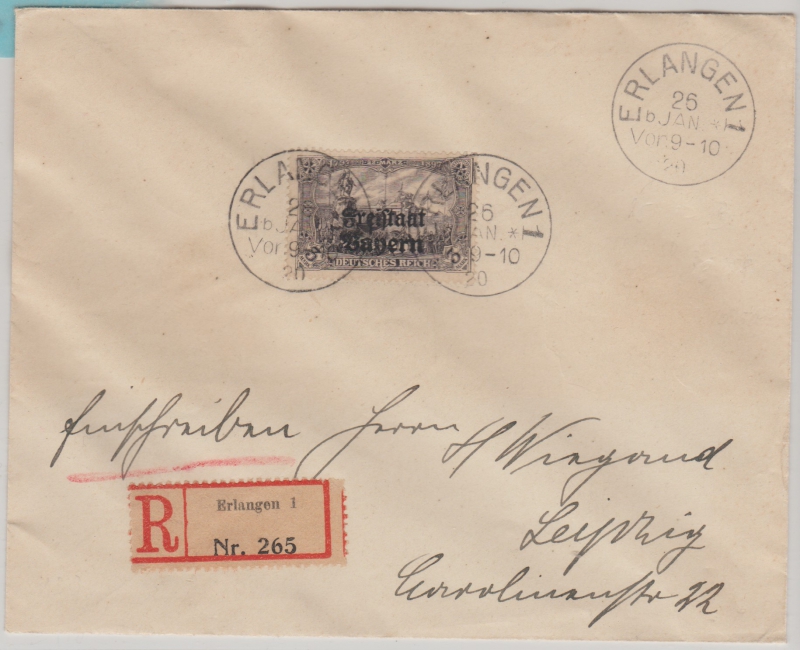 ERLANGEN 1
26
b JAN. *1
Vor. 9-10
20
ERLANGEN 1
26
b JAN. *1
Vor. 9-10
20
ERLANGEN 1
26
JAN. *1
9-10
20
Freistaat
Bayern
DEUTSCHES REICH
Einschreiben Herrn H Wiegand
Leipzig
Carolinenstr 22
R
Erlangen 1
Nr. 265